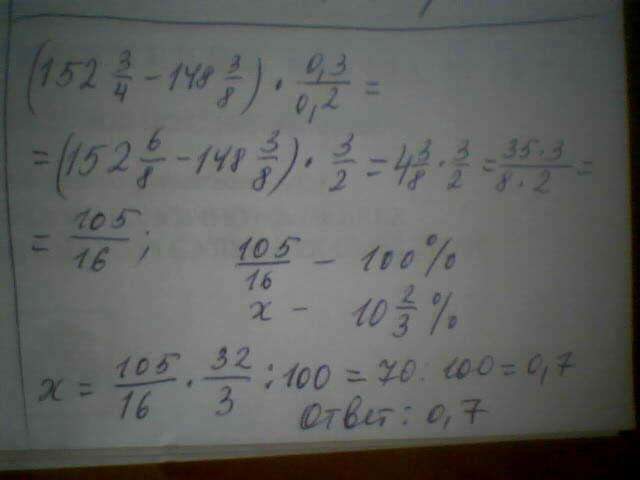 (152 3/4 - 148 3/8) · 0,3/0,2 =
= (152 6/8 - 148 3/8) · 3/2 = 4 3/8 · 3/2 = 35·3/8·2 =
= 105/16; 105/16 - 100%
x - 10 2/3 %
x = 105/16 · 32/3 : 100 = 70 : 100 = 0,7
Ответ: 0,7